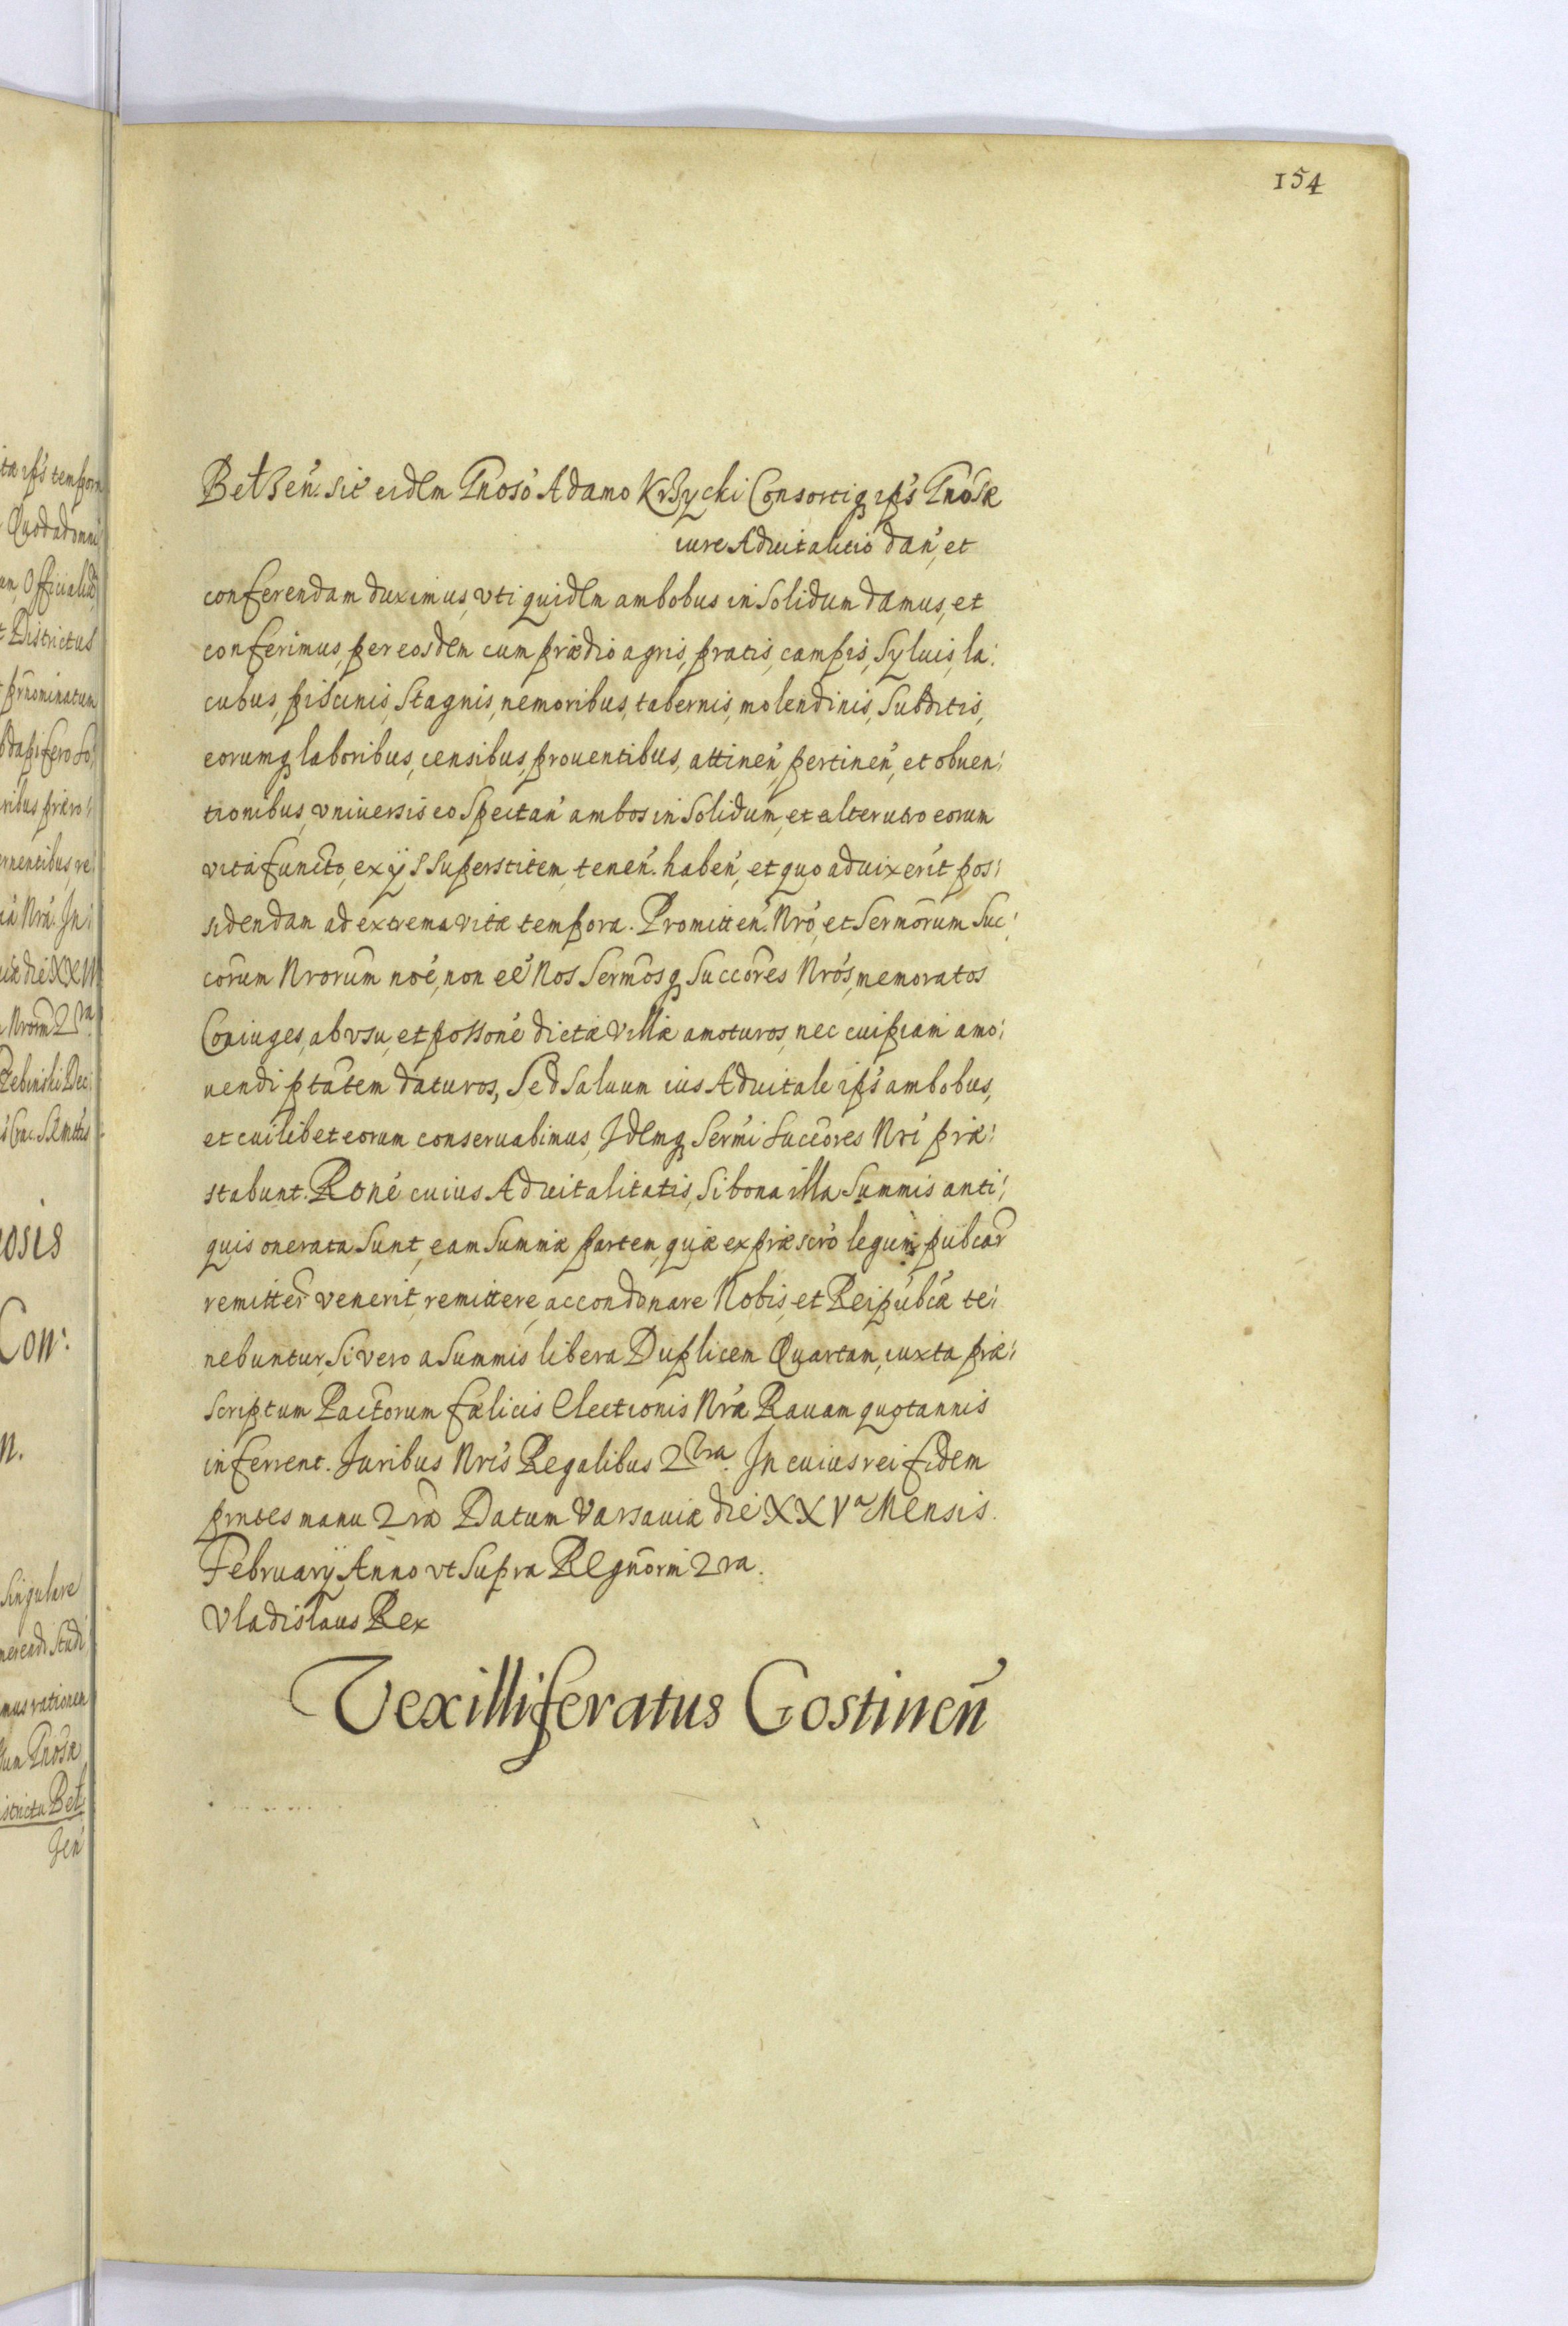 154
Betzen̄. sit̃ eidem Gnoso Adamo Krzycki Consortiq ipś Gnosæ
iure Aduitalitio dań, et
conferendam duximus, vti quidem ambobus in solidum damus, et
conferimus, per eosdem cum prædio agris, pratis, campis, syluis, la:
cubus, piscinis, stagnis, nemoribus, tabernis, molendinis, subditis,
eorumq laboribus, censibus, prouentibus, attineń, pertineń, et obuen:
tionibus, vniuersis eo spectań ambos in solidum, et alterutro eorum
vita functo, ex ijs superstitem, teneń. habeń, et quo aduixerit pos:
sidendam ad extrema vitæ tempora. Promitteń. Nró, et Sermorum Suc:
corum Nrorum noé, non eé Nos Sermosq Succores Nrós, memoratos
Coniuges, ab vsu, et possoné dictæ Villæ amoturos, nec cuipiam amo:
uendi ptatem daturos, Sed saluum ius Aduitale ipś ambobus,
et cuilibet eorum conseruabimus, Idemq Sermi Succores Nri præ:
stabunt. Roné cuius Aduitalitatis, si bona illa summis anti:
quis onerata sunt, eam summæ partem, quæ ex præscro legum pubcar
remitter venerit, remittere, accondonare Nobis, et Reipubcæ te:
nebuntur, Si vero a summis libera Duplicem Quartam, iuxta præ:
scriptum Pactorum fælicis Electionis Nræ Rauam quotannis
inferrent. Iuribus Nris Regalibus 2ra. In cuius rei fidem
prntes manu 2ra Datum Varsauiæ die XXVa Mensis.
Februarij Anno vt supra Regnorm 2ra.
Vladislaus Rex
Vexilliferatus Gostineń
ta ipś tempora
Quod ad omni
Officialib
Districtus
prnominatum
dapifero So:
ribus præro:
rnentibus, re:
Nrá. In:
die XXVI
Nrorm 2ra
Con:
n.
Singulare
nerendi studi
mus rationem
Gnosæ
istrictu Bet
zeń